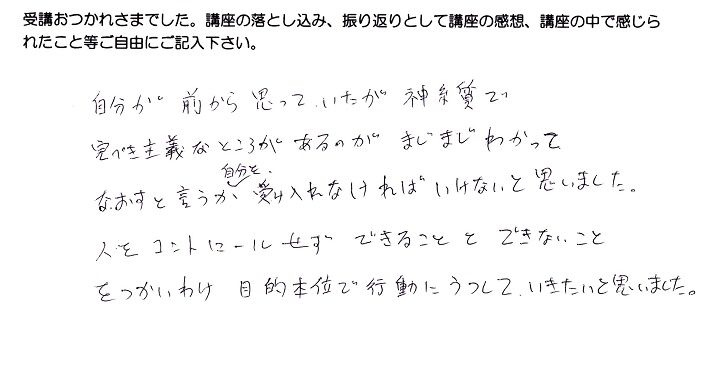 受講おつかれさまでした。講座の落とし込み、振り返りとして講座の感想、講座の中で感じら
れたこと等ご自由にご記入下さい。
自分が 前から思って、いたが 神経質で
完ぺき主義なところが あるのが まじまじわかって
自分を、
なおすと言うか 受け入れなければ いけないと思いました。
人をコントロールせず できることと できないこと
をつかいわけ 目的本位で行動にうつして、いきたいと思いました。